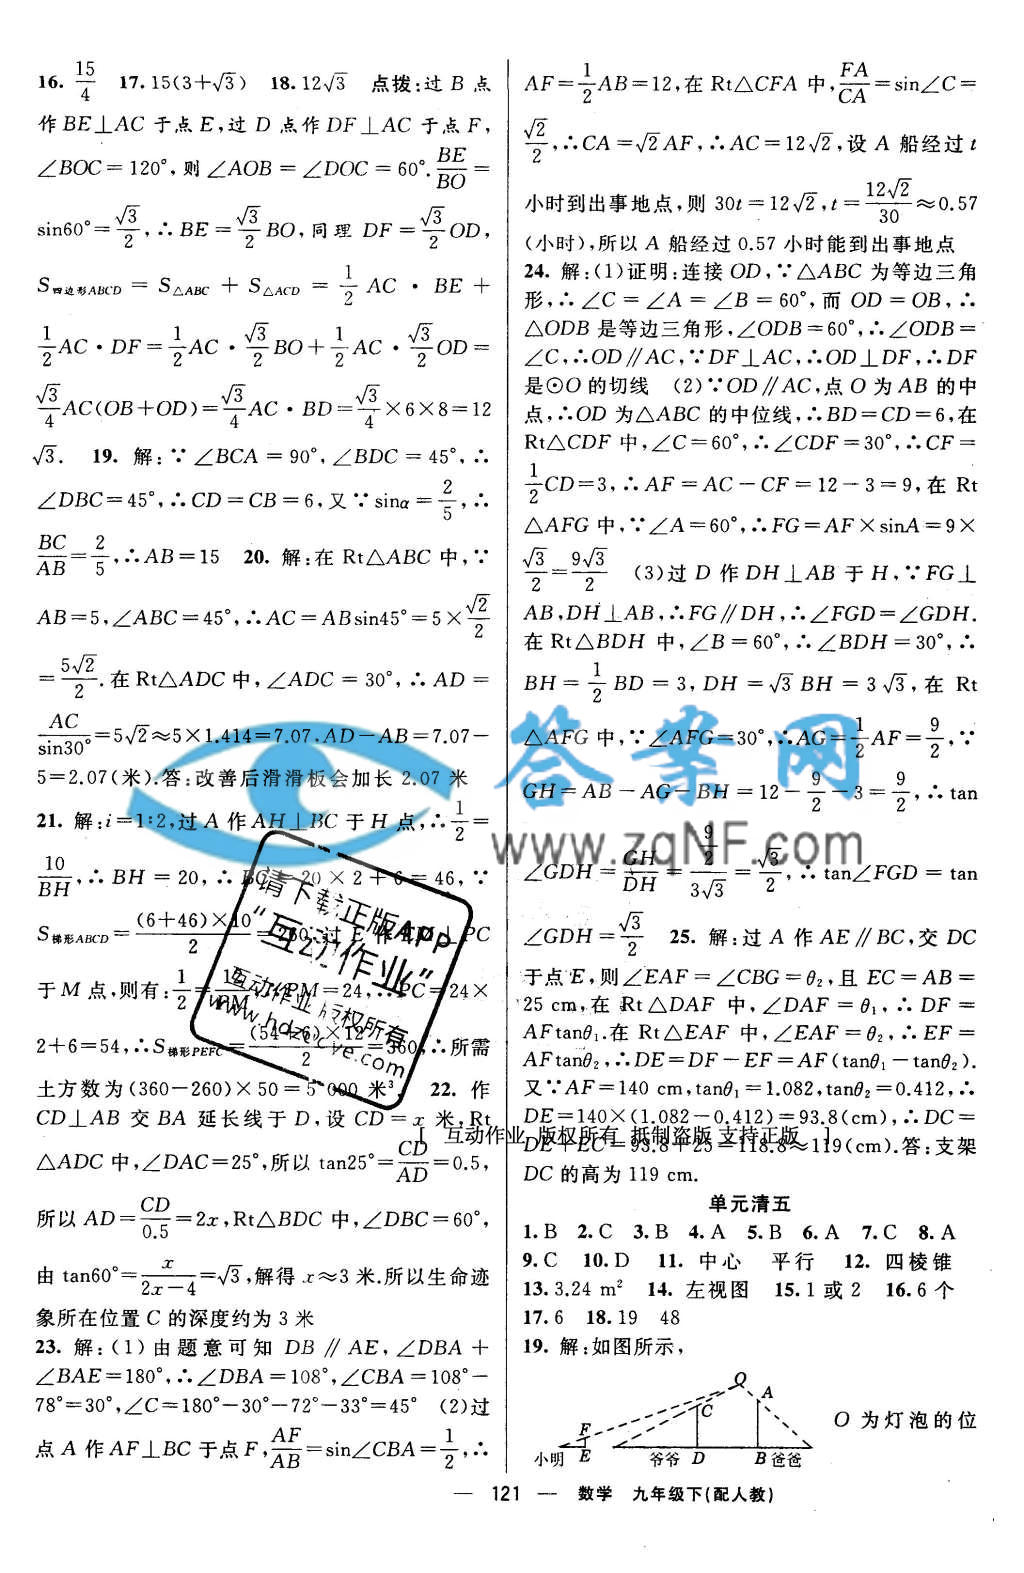 16. 15/4 17. 15(3+√3) 18. 12√3 点拨:过 B 点
作 BE⊥AC 于点 E,过 D 点作 DF⊥AC 于点 F,
∠BOC=120°,则∠AOB=∠DOC=60°. BE/BO=
sin60°=√3/2,∴BE=√3/2 BO,同理 DF=√3/2 OD,
S四边形ABCD = S△ABC + S△ACD = 1/2 AC · BE +
1/2 AC·DF=1/2 AC·√3/2 BO+1/2 AC·√3/2 OD=
√3/4 AC(OB+OD)=√3/4 AC·BD=√3/4×6×8=12
√3. 19. 解:∵∠BCA=90°,∠BDC=45°,∴
∠DBC=45°,∴CD=CB=6,又∵sinα=2/5,∴
BC/AB=2/5,∴AB=15 20. 解:在 Rt△ABC 中,∵
AB=5,∠ABC=45°,∴AC=ABsin45°=5×√2/2
=5√2/2.在 Rt△ADC 中,∠ADC=30°,∴AD=
AC/sin30°=5√2≈5×1.414=7.07,AD-AB=7.07-
5=2.07(米).答:改善后滑滑板会加长 2.07 米
21. 解:i=1:2,过 A 作 AH⊥BC 于 H 点,∴1/2=
10/BH,∴BH=20,∴BC=20×2+6=46,∵
S梯形ABCD=(6+46)×10/2=260∴过 E 作 EM⊥PC
于 M 点,则有:1/2=12/PM,PM=24,∴PC=24×
2+6=54,∴S梯形PEFC=(54+6)×12/2=360,∴所需
土方数为(360-260)×50=5 000 米³ 22. 作
CD⊥AB 交 BA 延长线于 D,设 CD=x 米,Rt
△ADC 中,∠DAC=25°,所以 tan25°=CD/AD=0.5,
所以 AD=CD/0.5=2x,Rt△BDC 中,∠DBC=60°,
由 tan60°=x/2x-4=√3,解得 x≈3 米.所以生命迹
象所在位置 C 的深度约为 3 米
23. 解:(1)由题意可知 DB∥AE,∠DBA+
∠BAE=180°,∴∠DBA=108°,∠CBA=108°-
78°=30°,∠C=180°-30°-72°-33°=45° (2)过
点 A 作 AF⊥BC 于点 F,AF/AB=sin∠CBA=1/2,∴
AF=1/2 AB=12,在 Rt△CFA 中,FA/CA=sin∠C=
√2/2,∴CA=√2AF,∴AC=12√2,设 A 船经过 t
小时到出事地点,则 30t=12√2,t=12√2/30≈0.57
(小时),所以 A 船经过 0.57 小时能到出事地点
24. 解:(1)证明:连接 OD,∵△ABC 为等边三角
形,∴∠C=∠A=∠B=60°,而 OD=OB,∴
△ODB 是等边三角形,∠ODB=60°,∴∠ODB=
∠C,∴OD∥AC,∵DF⊥AC,∴OD⊥DF,∴DF
是⊙O 的切线 (2)∵OD∥AC,点 O 为 AB 的中
点,∴OD 为△ABC 的中位线,∴BD=CD=6,在
Rt△CDF 中,∠C=60°,∴∠CDF=30°,∴CF=
1/2 CD=3,∴AF=AC-CF=12-3=9,在 Rt
△AFG 中,∵∠A=60°,∴FG=AF×sinA=9×
√3/2=9√3/2 (3)过 D 作 DH⊥AB 于 H,∵FG⊥
AB,DH⊥AB,∴FG∥DH,∴∠FGD=∠GDH.
在 Rt△BDH 中,∠B=60°,∴∠BDH=30°,∴
BH=1/2 BD=3,DH=√3BH=3√3,在 Rt
△AFG 中,∵∠AFG=30°,∴AG=1/2 AF=9/2,∵
GH=AB-AG-BH=12-9/2-3=9/2,∴tan
∠GDH=GH/DH=9/2/3√3=√3/2,∴tan∠FGD=tan
∠GDH=√3/2 25. 解:过 A 作 AE∥BC,交 DC
于点 E,则∠EAF=∠CBG=θ₂,且 EC=AB=
25 cm,在 Rt△DAF 中,∠DAF=θ₁,∴DF=
AFtanθ₁.在 Rt△EAF 中,∠EAF=θ₂,∴EF=
AFtanθ₂,∴DE=DF-EF=AF(tanθ₁-tanθ₂).
又∵AF=140 cm,tanθ₁=1.082,tanθ₂=0.412,∴
DE=140×(1.082-0.412)=93.8(cm),∴DC=
DE+EC=93.8+25=118.8≈119(cm).答:支架
DC 的高为 119 cm.
单元清五
1.B 2.C 3.B 4.A 5.B 6.A 7.C 8.A
9.C 10.D 11. 中心 平行 12. 四棱锥
13. 3.24 m² 14. 左视图 15. 1 或 2 16. 6 个
17. 6 18. 19 48
19. 解:如图所示,
Q
A
C
F
O 为灯泡的位
小明 E 爷爷 D B 爸爸
— 121 — 数学 九年级下(配人教)
答案网
www.zqNF.com
请下载正版APP
“互动作业”
互动作业 版权所有
[ 互动作业 版权所有 抵制盗版 支持正版 ]